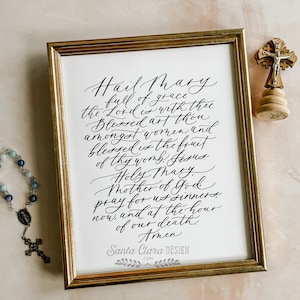 Hail Mary
full of grace
the Lord is with thee
Blessed art thou
amongst women and
blessed is the fruit
of thy womb Jesus
Holy Mary
Mother of God
pray for us sinners
now, and at the hour
of our death
Amen
Santa Clara DESIGN